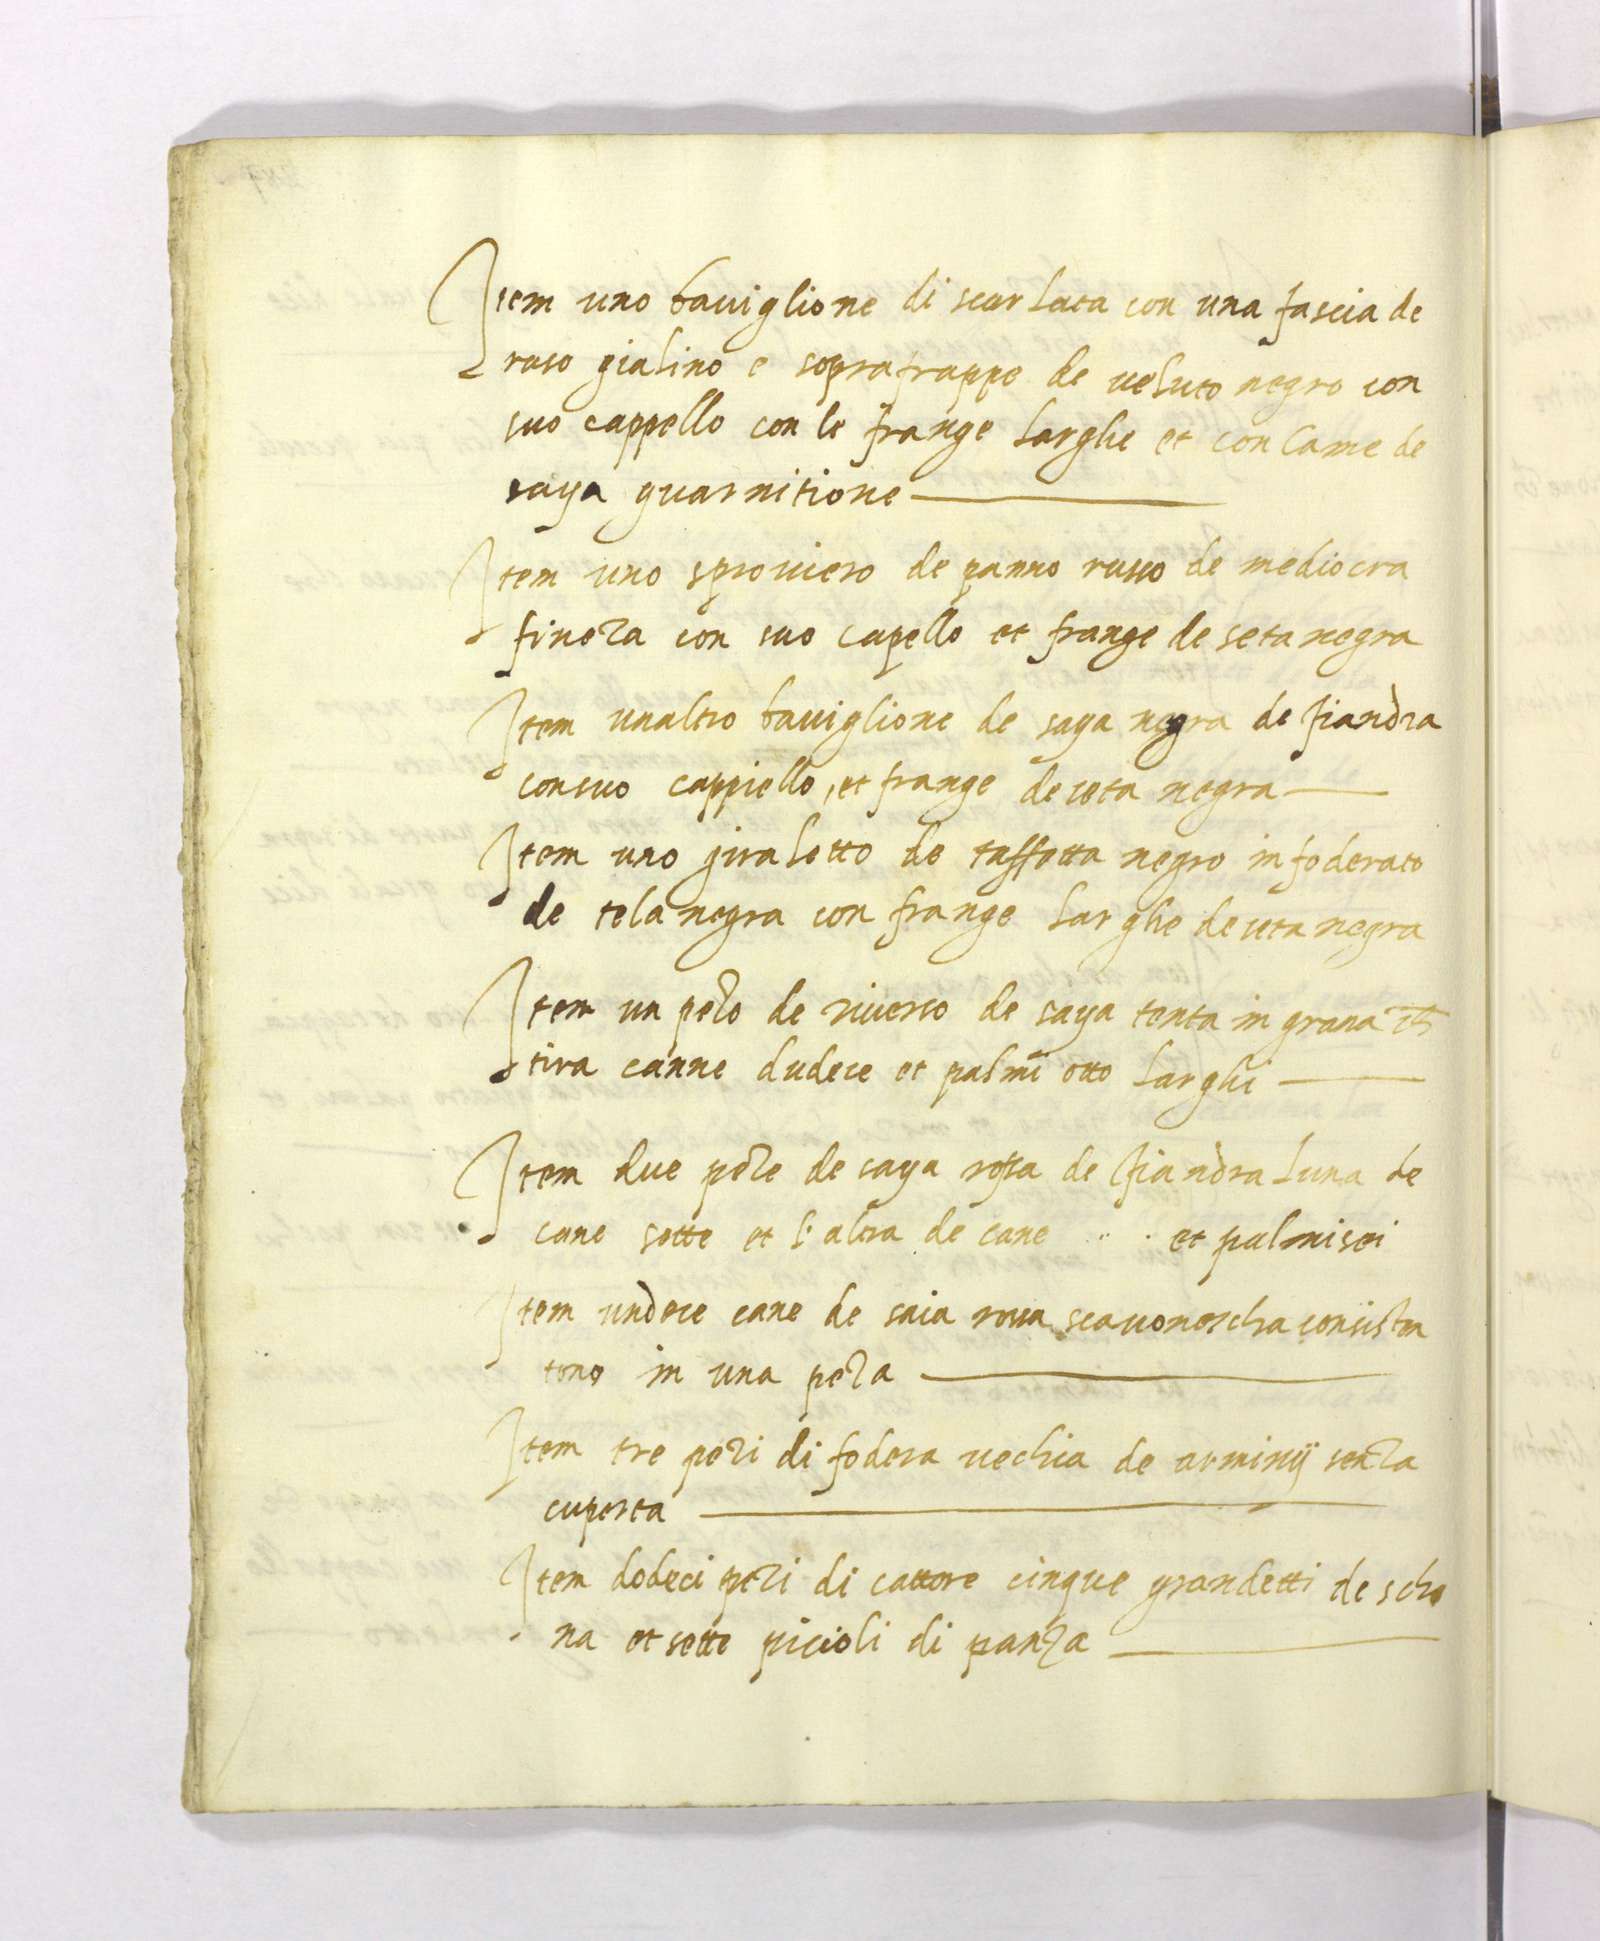 Item uno baviglione di scarlata con una fascia de
raso gialino e soprafrappe de veluto negro con
suo cappello con le frange larghe et con l'ame de
saya guarnitione
Item uno sproviero de panno russo de mediocra
fineza con suo capello et frange de seta negra
Item unaltro baviglione de saya negra de fiandra
con suo cappiello, et frange de seta negra
Item uno giraletto de taffetta negro infoderato
de tela negra con frange larghe de seta negra
Item un pezo de riverso de saya tenta in grana
tira canne dudece et palmi otto larghi
Item due peze de saya rossa de fiandra luna de
cane sette et l'altra de cane et palmi sei
Item undece cane de saia rossa scavonescha consiston
tono in una peza
Item tre pezi di fodera vechia de arminij senza
cuperta
Item dodeci pezi di cattore cinque grandetti de sche
na et sette picioli di panza